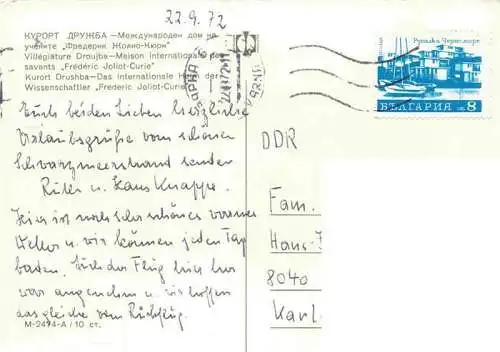 22.9.72
КУРОРТ ДРУЖБА—Международен дом на
учените "Фредерик Жолио-Кюри"
Villégiature Droujba—Maison internationale des
savants "Frédéric Joliot-Curie"
Kurort Drushba—Das internationale Haus der
Wissenschaftler „Frederic Joliot-Curie"
ВАРНА
VARNA
Русалка Черно море
БЪЛГАРИЯ 8
Euch beiden Lieben herzliche
Urlaubsgrüße vom schönen
Schwarzmeerstrand senden
u. Hans Knappe.
Hier ist noch sehr schönes warmes
Wetter u. wir können jeden Tag
baden. Auch der Flug hier her
war angenehm u. wir hoffen
das gleiche vom Rückflug.
М-2494-А / 10 ст.
DDR
Fam.
Hans-
8040
Karl